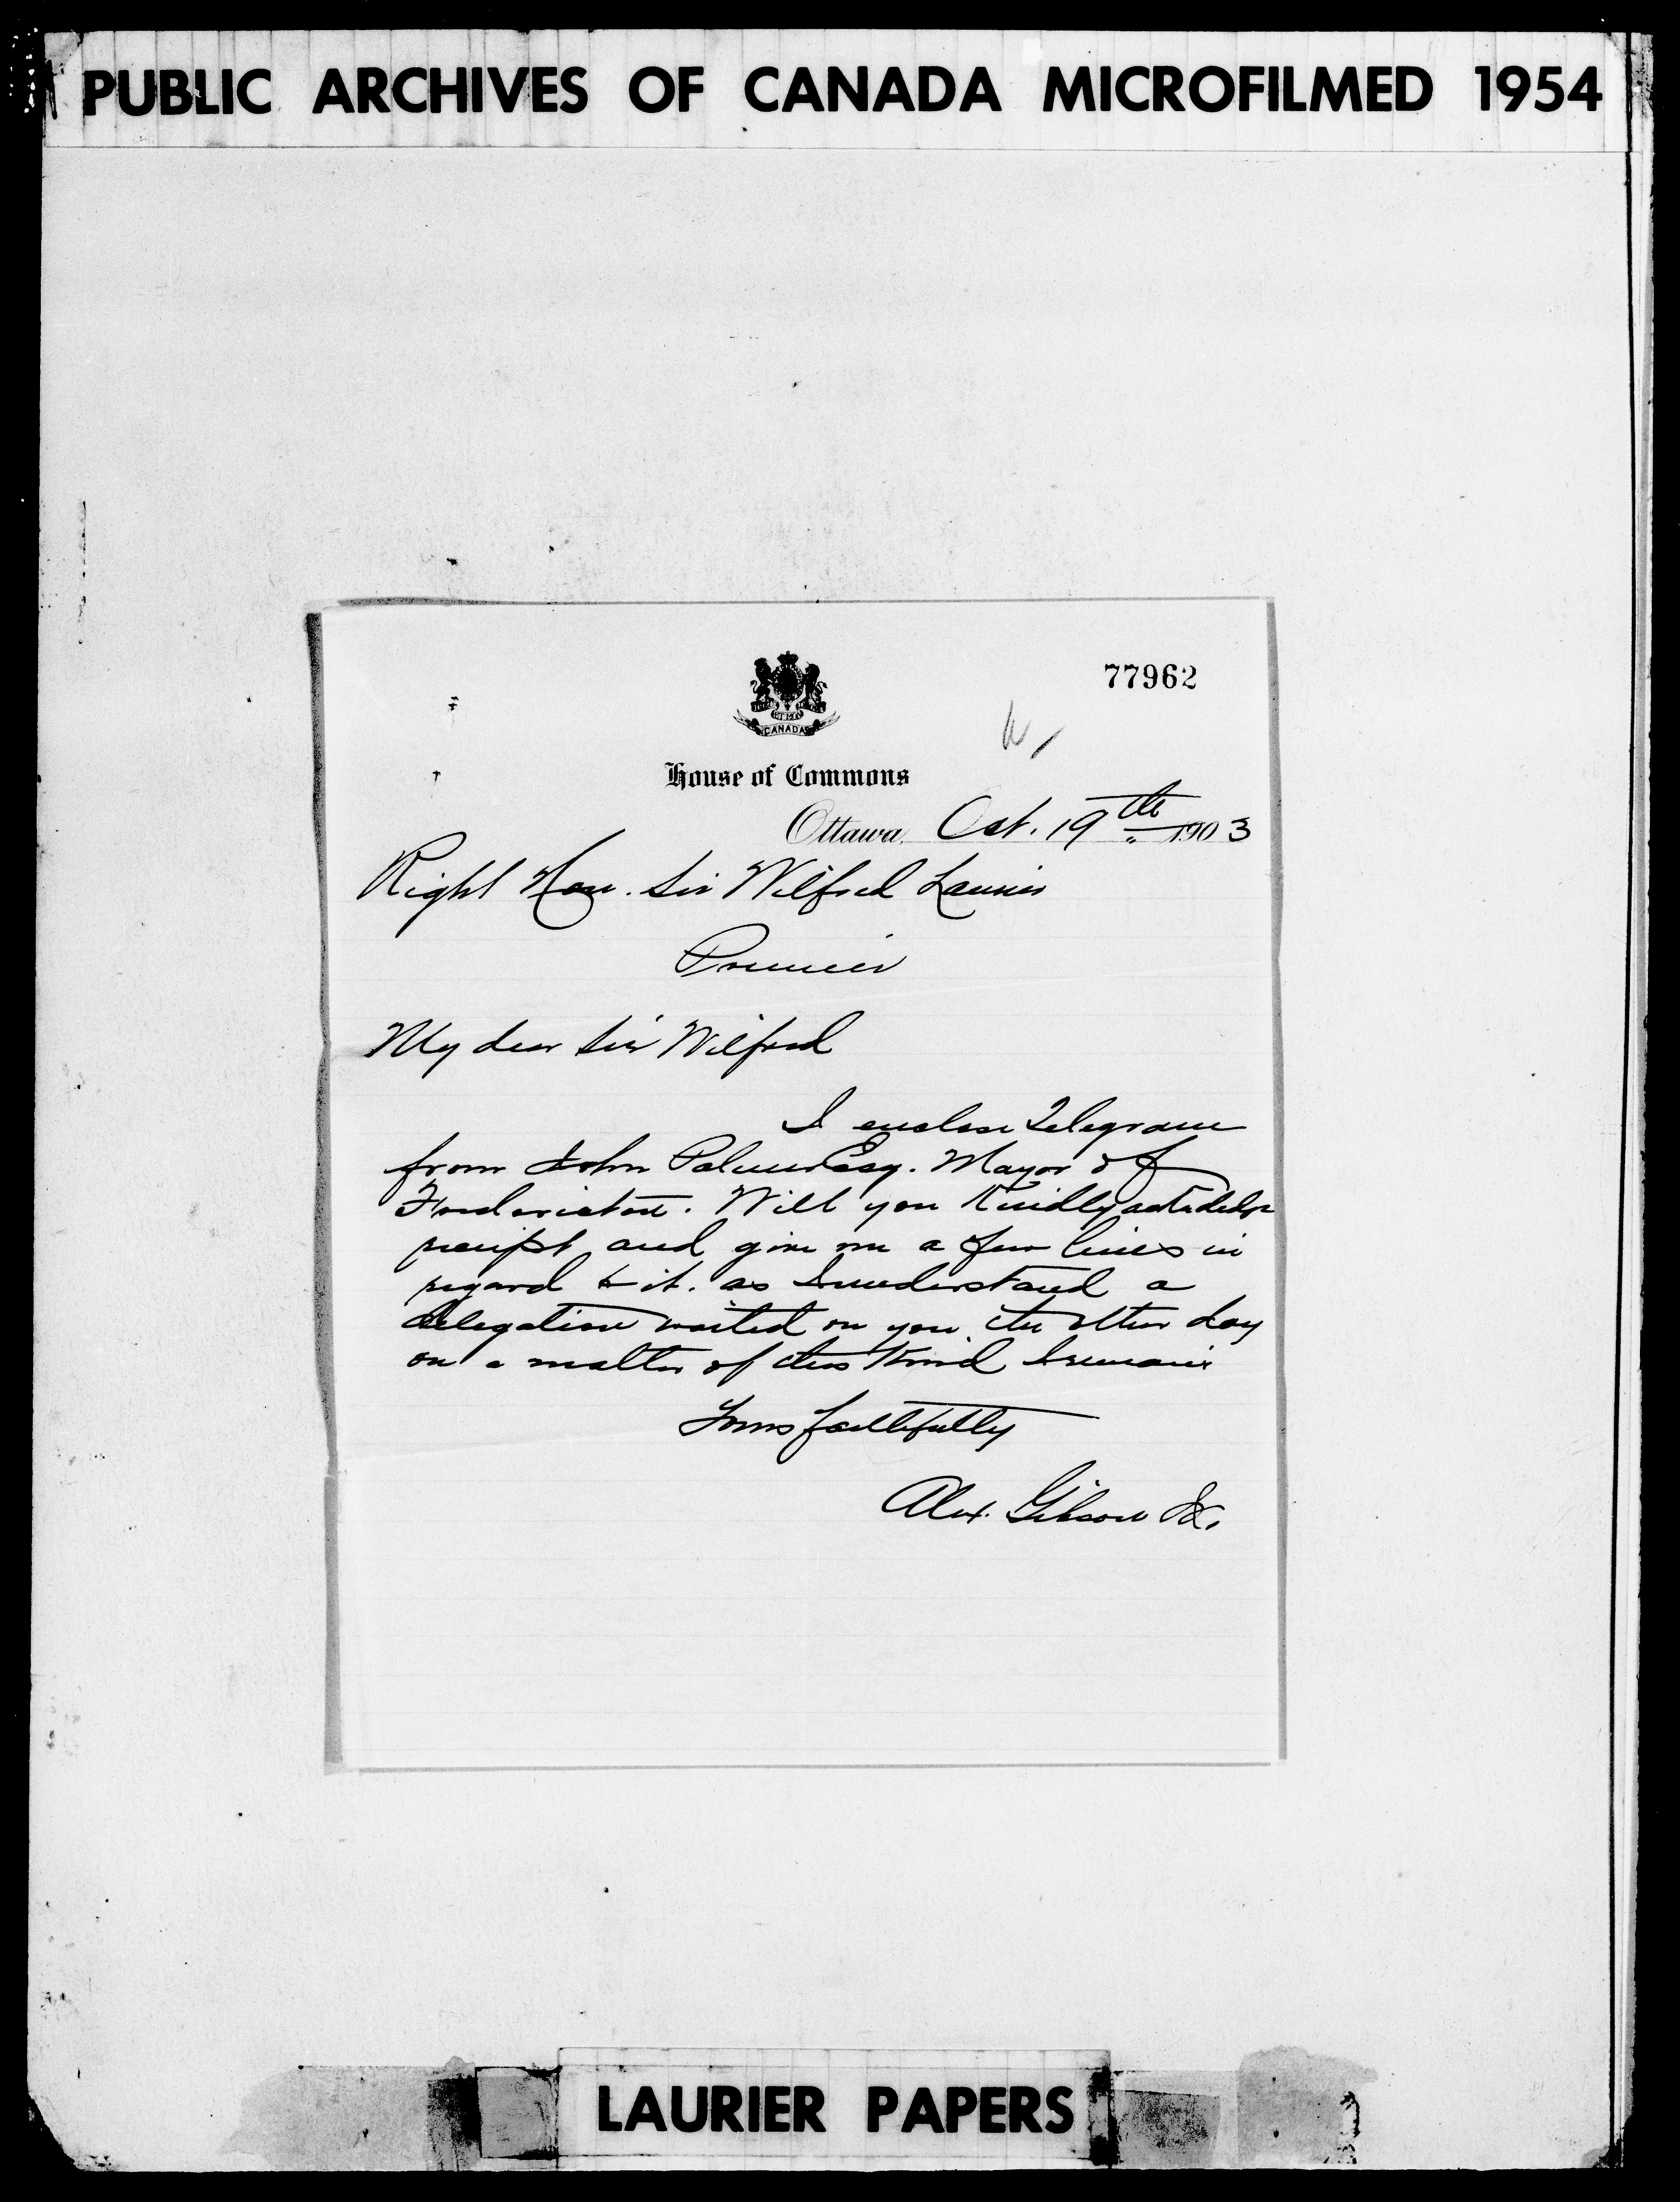 PUBLIC ARCHIVES OF CANADA MICROFILMED 1954
77962
CANADA
House of Commons
Ottawa, Oct. 19th 1903
Right Hon. Sir Wilfred Laurier
Premier
My dear Sir Wilfred
I enclose Telegram
from John Palmer Esq. Mayor of
Fredericton. Will you Kindly
receipt and give me a few lines in
regard to it. as I understand a
delegation waited on you the other day
on a matter of this Kind I remain
Yours faithfully
Alex. Gibson Jr.
LAURIER PAPERS